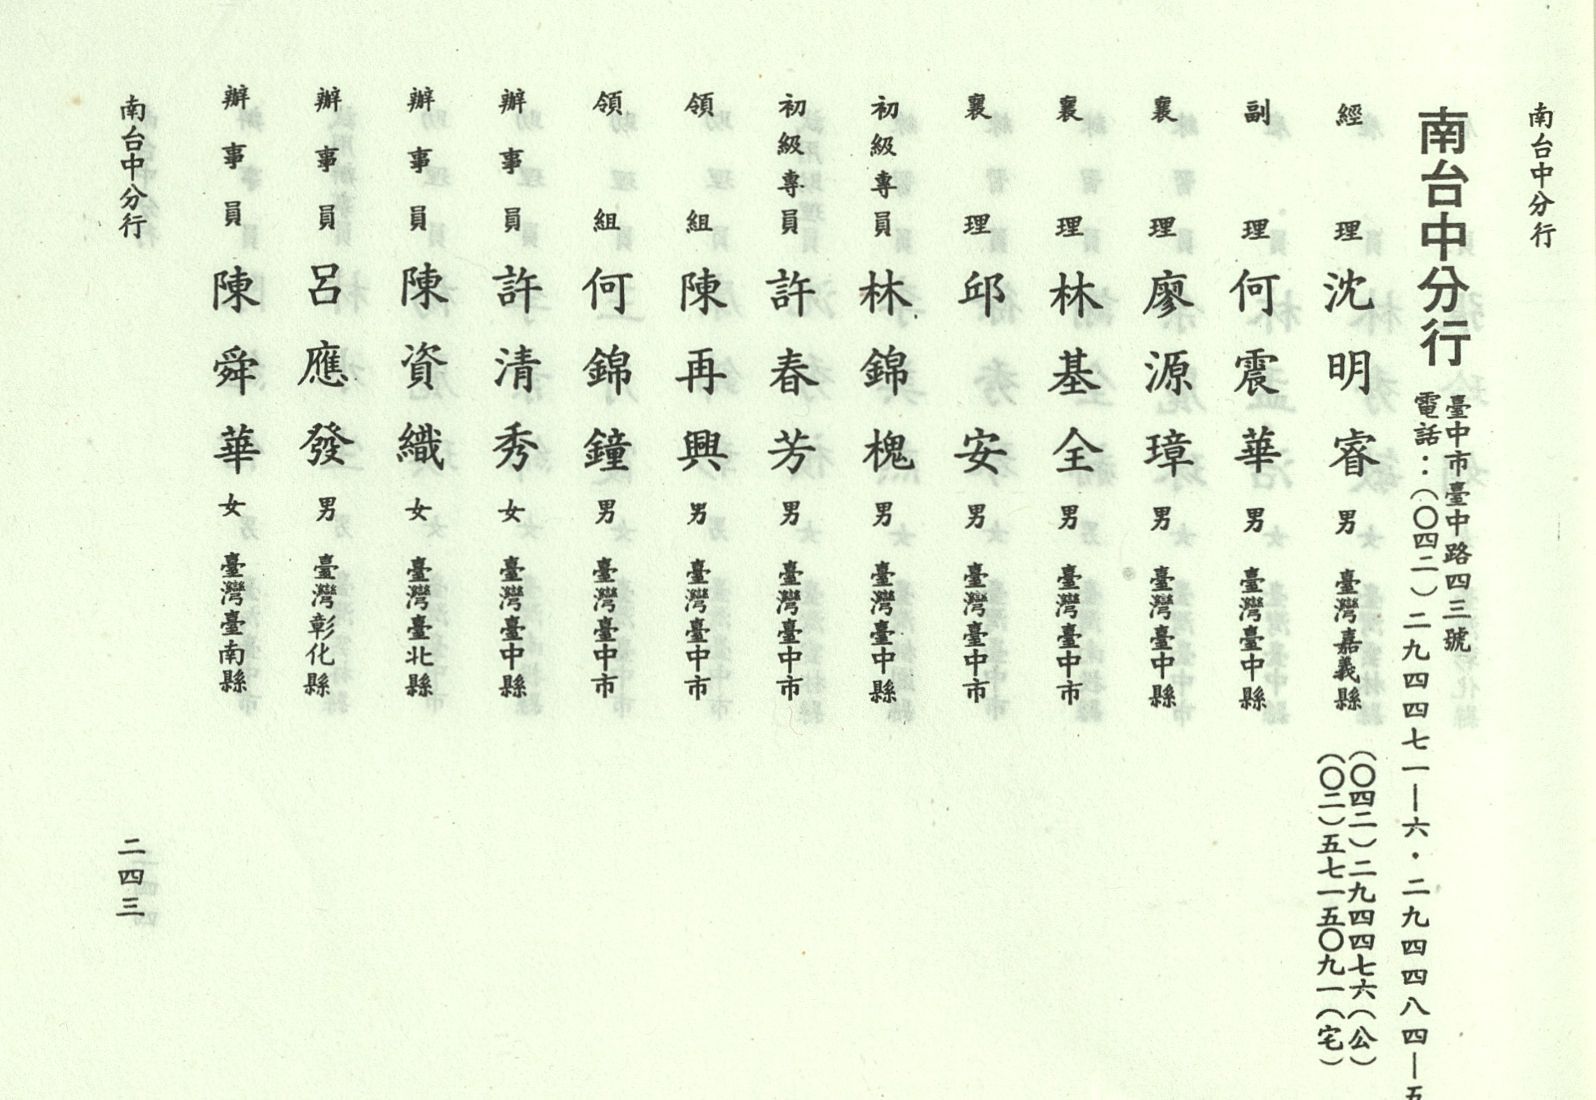 南台中分行
南台中分行
臺中市臺中路四三號
電話：（〇四二）二九四四七一—六・二九四四八四—五
經理 沈明睿 男 臺灣嘉義縣 （〇四二）二九四四七六（公）
（〇二）五七一五〇九一（宅）
副理 何震華 男 臺灣臺中縣
襄理 廖源璋 男 臺灣臺中縣
襄理 林基全 男 臺灣臺中市
襄理 邱安 男 臺灣臺中市
初級專員 林錦槐 男 臺灣臺中縣
初級專員 許春芳 男 臺灣臺中市
領組 陳再興 男 臺灣臺中市
領組 何錦鐘 男 臺灣臺中市
辦事員 許清秀 女 臺灣臺中縣
辦事員 陳資織 女 臺灣臺北縣
辦事員 呂應發 男 臺灣彰化縣
辦事員 陳舜華 女 臺灣臺南縣
南台中分行
二四三